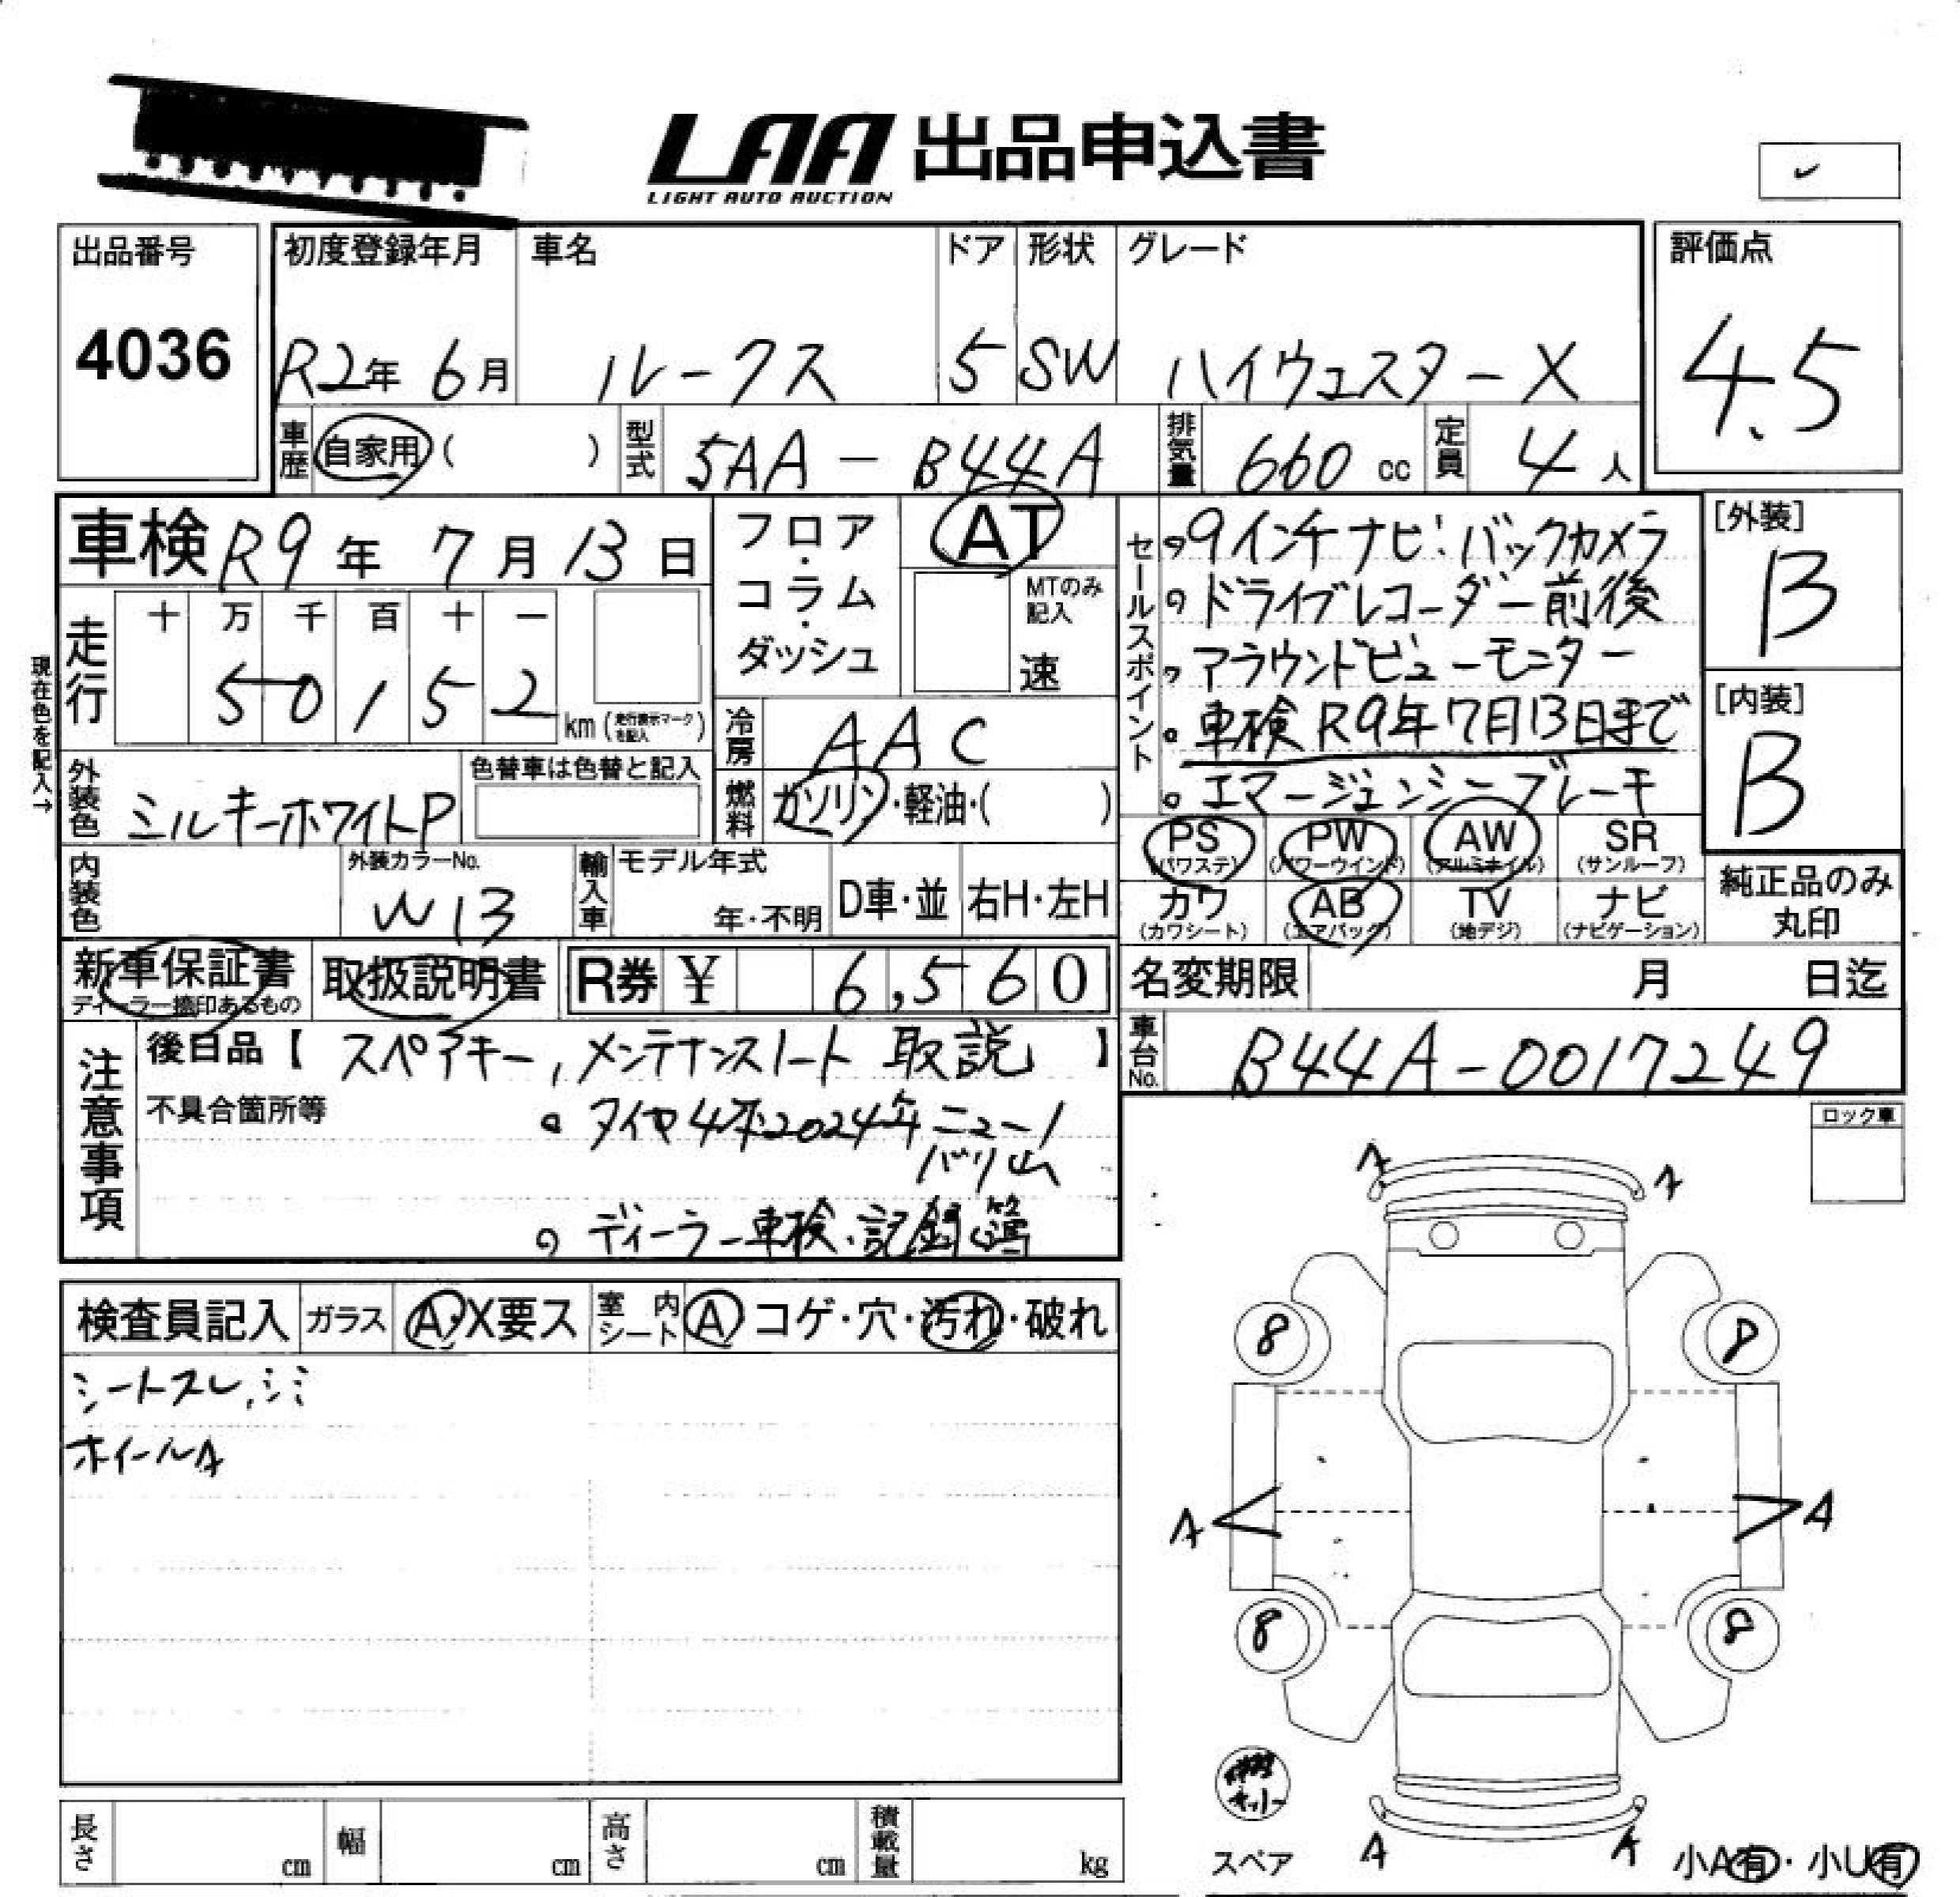 LAA 出品申込書
LIGHT AUTO AUCTION
出品番号
4036
初度登録年月 車名 ドア 形状 グレード
R2年 6月 ルークス 5 SW ハイウェスターX
評価点
4.5
車歴 自家用 ( ) 型式 5AA-B44A 排気量 660 cc 定員 4人
車検 R9年 7月 13日
フロア・コラム・ダッシュ
AT
MTのみ記入
速
走行 十 万 千 百 十 一
5 0 1 5 2 km (走行表示マークを記入)
現在色を記入→
冷房 AAC
燃料 ガソリン・軽油・( )
外装色 ミルキーホワイトP
色替車は色替と記入
内装色
外装カラーNo.
W13
輸入車 モデル年式
年・不明 D車・並 右H・左H
セールスポイント
9インチナビ:バックカメラ
ドライブレコーダー前後
アラウンドビューモニター
車検R9年7月13日まで
エマージェンシーブレーキ
[外装]
B
[内装]
B
PS (パワステ) PW (パワーウインド) AW (アルミホイル) SR (サンルーフ)
カワ (カワシート) AB (エアバッグ) TV (地デジ) ナビ (ナビゲーション)
純正品のみ丸印
新車保証書
ディーラー捺印あるもの
取扱説明書
R券 ¥ 6,560
名変期限 月 日迄
車台No. B44A-0017249
注意事項
後日品【 スペアキー,メンテナンスノート 取説 】
不具合箇所等
タイヤ4本2024年ニュー!
バリ山
ディーラー車検・記録簿
ロック車
検査員記入 ガラス A・X要ス 室内シート A コゲ・穴・汚れ・破れ
シートスレ,シミ
ホイールA
A A
8 8
A A
8 8
スペア
A A
小A有・小U有
長さ cm 幅 cm 高さ cm 積載量 kg